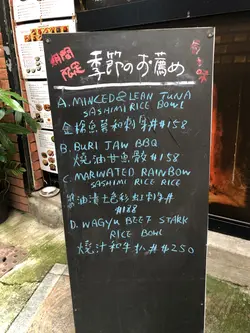 期間
限定
季節のお薦め
A. MINCED & LEAN TUNA
SASHIMI RICE BOWL
魚和刺身丼 $158
B. BURI JAW BBQ
燒油甘魚鮫 $158
C. MARINATED RAINBOW
SASHIMI RICE RICE
油漬七色彩虹刺身丼
$188
D. WAGYU BEEF STARK
RICE BOWL
燒汁和牛扒丼 $250